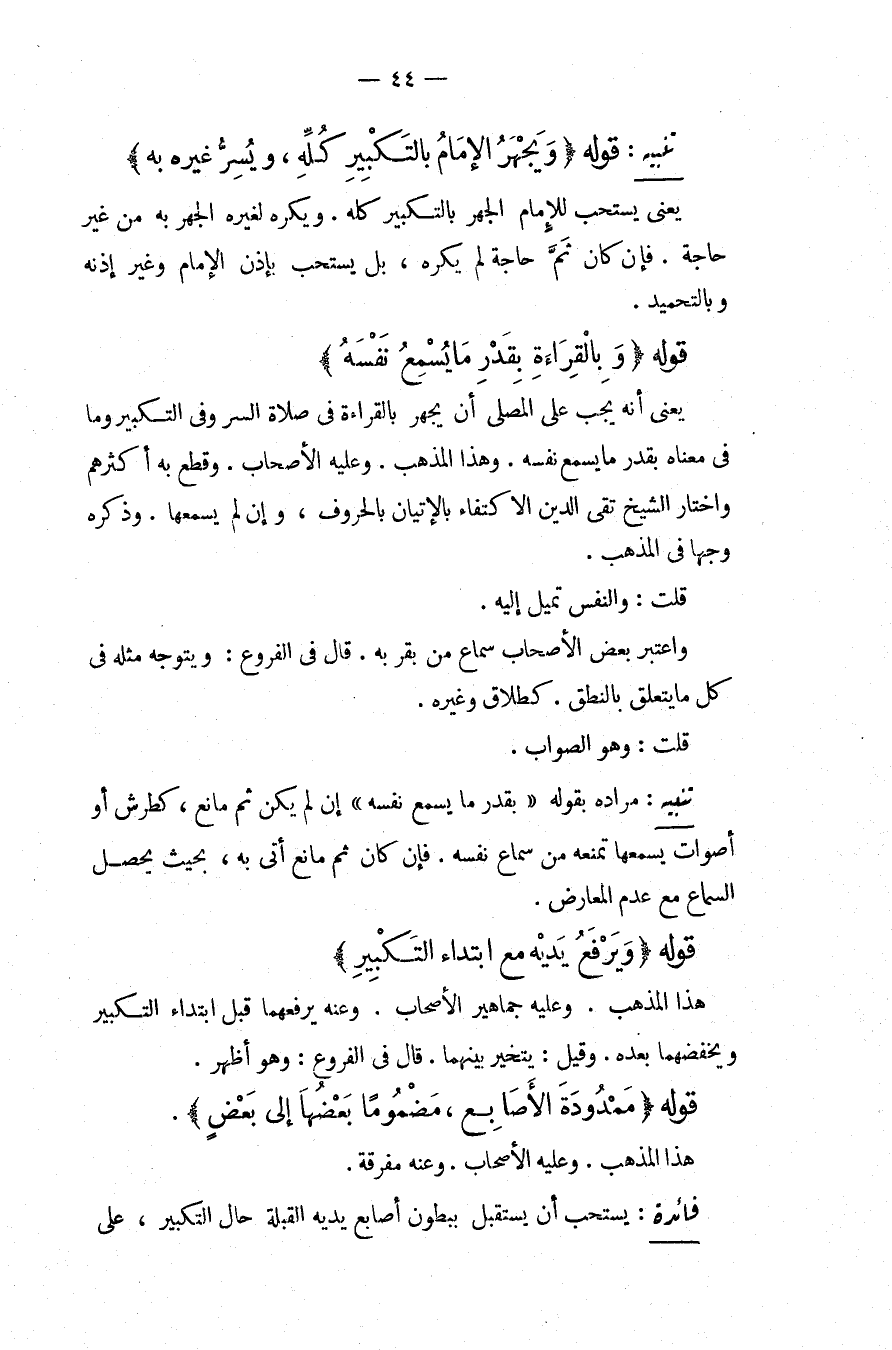 — ٤٤ —
تنبيه : قوله ﴿ وَيَجْهَرُ الإمَامُ بالتَّكْبِيرِ كُلِّهِ ، و يُسِرُّ غيره به ﴾
يعنى يستحب للإِمام الجهر بالتكبير كله . ويكره لغيره الجهر به من غير
حاجة . فإن كان ثَمَّ حاجة لم يكره ، بل يستحب بإذن الإمام وغير إذنه
وبالتحميد .
قوله ﴿ وَ بِالْقِرَاءَةِ بِقَدْرِ مَايُسْمِعُ نَفْسَهُ ﴾
يعنى أنه يجب على المصلى أن يجهر بالقراءة فى صلاة السر وفى التكبير وما
فى معناه بقدر مايسمع نفسه . وهذا المذهب . وعليه الأصحاب . وقطع به أكثرهم
واختار الشيخ تقى الدين الاكتفاء بالإتيان بالحروف ، و إن لم يسمعها . وذكره
وجها فى المذهب .
قلت : والنفس تميل إليه .
واعتبر بعض الأصحاب سماع من بقر به . قال فى الفروع : ويتوجه مثله فى
كل مايتعلق بالنطق . كطلاق وغيره .
قلت : وهو الصواب .
تنبيه : مراده بقوله « بقدر ما يسمع نفسه » إن لم يكن ثم مانع ، كطرش أو
أصوات يسمعها تمنعه من سماع نفسه . فإن كان ثم مانع أتى به ، بحيث يحصل
السماع مع عدم المعارض .
قوله ﴿ وَيَرْفَعُ يَدَيْه مع ابتداء التَّكْبِيرِ ﴾
هذا المذهب . وعليه جماهير الأصحاب . وعنه يرفعهما قبل ابتداء التكبير
ويخفضهما بعده . وقيل : يتخير بينهما . قال فى الفروع : وهو أظهر .
قوله ﴿ مَمْدُودَةَ الأَصَابِع ، مَضْمُومًا بَعْضُهَا إلى بَعْضٍ ﴾ .
هذا المذهب . وعليه الأصحاب . وعنه مفرقة .
فائدة : يستحب أن يستقبل ببطون أصابع يديه القبلة حال التكبير ، على